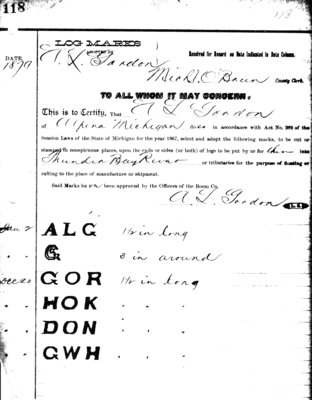 118
118
LOG MARKS
DATE.
1879
A. L. Gordon
Received for Record on Date Indicated in Date Column.
Michl. O'Brien County Clerk.
TO ALL WHOM IT MAY CONCERN.
This is to Certify, That A L Gordon
of Alpena Michigan does in accordance with Act No. of the
Session Laws of the State of Michigan for the year 1867, select and adopt the following marks, to be cut or
stamped in conspicuous places, upon the ends or sides (or both) of logs to be put by or for him into
Thunder Bay River or tributaries for the purpose of floating or
rafting to the place of manufacture or shipment.
Said Marks have been approved by the Officers of the Boom Co.
A. L. Gordon
Jan 2 ALG 1½ in long
" " G 3 in around
Dec 20 GOR 1½ in long
" " HOK " " "
" " DON " " "
" " GWH " " "